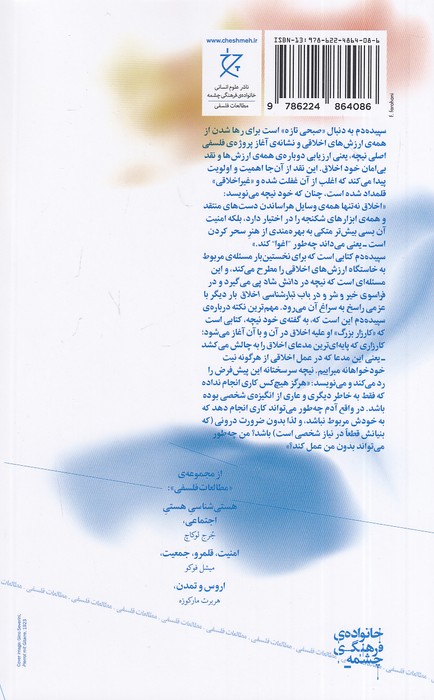 www.cheshmeh.ir
ناشر علوم انسانی
خانواده‌ی فرهنگی چشمه
مطالعات فلسفی
ISBN-13: 978-622-4864-08-6
9 786224 864086
سپیده‌دم به دنبال «صبحی تازه» است برای رها شدن از
همه‌ی ارزش‌های اخلاقی و نشانه‌ی آغاز پروژه‌ی فلسفی
اصلی نیچه، یعنی ارزیابی دوباره‌ی همه‌ی ارزش‌ها و نقد
بی‌امان خود اخلاق. این نقد از آن‌جا اهمیت و اولویت
پیدا می‌کند که اغلب از آن غفلت شده و «غیراخلاقی»
قلمداد شده است. چنان که خود نیچه می‌نویسد:
«اخلاق نه‌تنها همه‌ی وسایل هراساندن دست‌های منتقد
و همه‌ی ابزارهای شکنجه را در اختیار دارد، بلکه امنیت
آن بسی بیش‌تر متکی به بهره‌مندی از هنرِ سحر کردن
است ـ یعنی می‌داند چه‌طور "اغوا" کند.»
سپیده‌دم کتابی است که برای نخستین‌بار مسئله‌ی مربوط
به خاستگاه ارزش‌های اخلاقی را مطرح می‌کند، و این
مسئله‌ای است که نیچه در دانش شاد پی می‌گیرد و در
فراسوی خیر و شر و در باب تبارشناسی اخلاق بار دیگر با
عزمی راسخ به سراغ آن می‌رود. مهم‌ترین نکته درباره‌ی
سپیده‌دم این است که، به گفته‌ی خود نیچه، کتابی است
که «کارزار بزرگ» او علیه اخلاق در آن و با آن آغاز می‌شود:
کارزاری که پایه‌ای‌ترین مدعای اخلاق را به چالش می‌کشد
ـ یعنی این مدعا که در عمل اخلاقی از هرگونه نیت
خودخواهانه مبراییم. نیچه سرسختانه این پیش‌فرض را
رد می‌کند و می‌نویسد: «هرگز هیچ‌کس کاری انجام نداده
که فقط به خاطر دیگری و عاری از انگیزه‌ی شخصی بوده
باشد. در واقع آدم چه‌طور می‌تواند کاری انجام دهد که
به خودش مربوط نباشد، و لذا بدون ضرورت درونی (که
بنیانش قطعاً در نیاز شخصی است) باشد؟ من چه‌طور
می‌تواند بدون من عمل کند!»
از مجموعه‌ی
«مطالعات فلسفی»:
هستی‌شناسی هستی
اجتماعی،
جُرج لوکاچ
امنیت، قلمرو، جمعیت،
میشل فوکو
اروس و تمدن،
هربرت مارکوزه
مطالعات فلسفی . مطالعات فلسفی . مطالعات فلسفی . مطالعات فلسفی . مطالعات فلسفی . مطالعات فلسفی . مطالعات فلسفی
خانواده‌ی
فرهنگی
چشمه